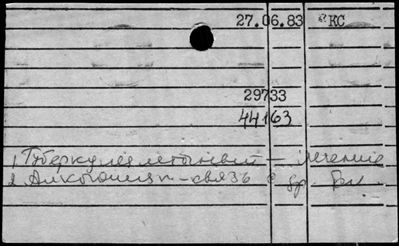 27.06.83 КС
29733
44163
1. Туберкулез легочный - лечение
2 Алкоголизм - связь с др.